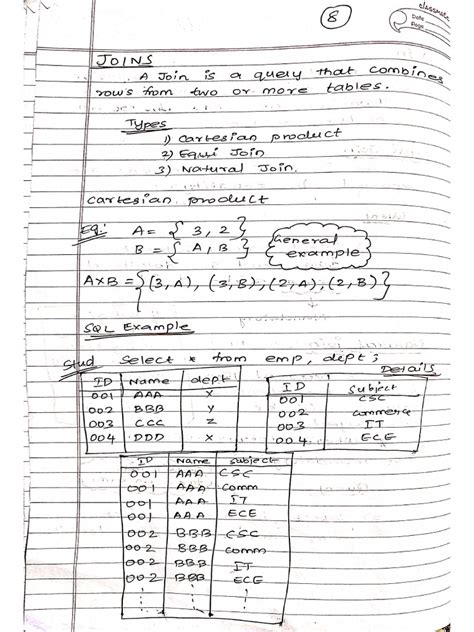 8
classmate
Date
Page
JOINS
A Join is a query that combines
rows from two or more tables.
Types
1) Cartesian product
2) Equi Join
3) Natural Join.
Cartesian product
Eg:
A = { 3, 2 }
B = { A, B }
General
example
AXB = { (3, A), (3, B), (2, A), (2, B) }
SQL Example
Select * from emp, dept;
Stud
ID Name dept
001 AAA X
002 BBB Y
003 CCC Z
004 DDD X
Details
ID Subject
001 CSC
002 commerce
003 IT
004 ECE
ID Name Subject
001 AAA CSC
001 AAA Comm
001 AAA IT
001 AAA ECE
002 BBB CSC
002 BBB Comm
002 BBB IT
002 BBB ECE